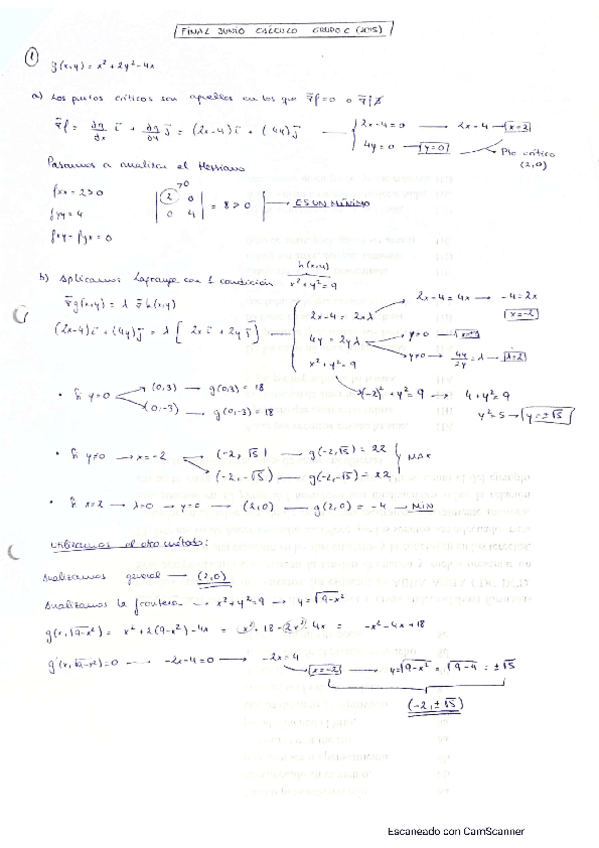 FINAL JUNIO CÁLCULO GRUPO C (2015)
① g(x,y) = x² + 2y² - 4x
a) Los puntos críticos son aquellos en los que ∇f = 0 o ∇f ∄
∇f = ∂g/∂x i + ∂g/∂y j = (2x-4) i + (4y) j → { 2x-4=0 → 2x=4 → x=2
4y=0 → y=0 → Pto crítico (2,0)
Pasamos a analizar el Hessiano
fxx = 2 > 0
fyy = 4
fxy = fyx = 0
| 2 0 | >0
| 0 4 | = 8 > 0 → ES UN MÍNIMO
b) Aplicamos Lagrange con 1 condición x² + y² = 9
h(x,y)
∇g(x,y) = λ ∇h(x,y)
(2x-4) i + (4y) j = λ [ 2x i + 2y j ] →
2x-4 = 2xλ → 2x-4 = 4x → -4 = 2x
x=-2
4y = 2yλ → y=0
y≠0 → 4y/2y = λ → λ=2
x² + y² = 9 → (-2)² + y² = 9 → 4 + y² = 9
y² = 5 → y = ±√5
• Si y=0 → (0,3) → g(0,3) = 18
(0,-3) → g(0,-3) = 18
• Si y≠0 → x=-2 → (-2,√5) → g(-2,√5) = 22
(-2,-√5) → g(-2,-√5) = 22 } MAX
• Si x=2 → λ=0 → y=0 → (2,0) → g(2,0) = -4 → MIN
Utilizamos el otro método:
Analizamos general → (2,0)
Analizamos la frontera → x² + y² = 9 → y = √9-x²
g(x,√9-x²) = x² + 2(9-x²) - 4x = x² + 18 - 2x² - 4x = -x² - 4x + 18
g'(x,√9-x²) = 0 → -2x-4=0 → -2x=4
x=-2 → y = √9-x² = √9-4 = ±√5
(-2,±√5)
Escaneado con CamScanner